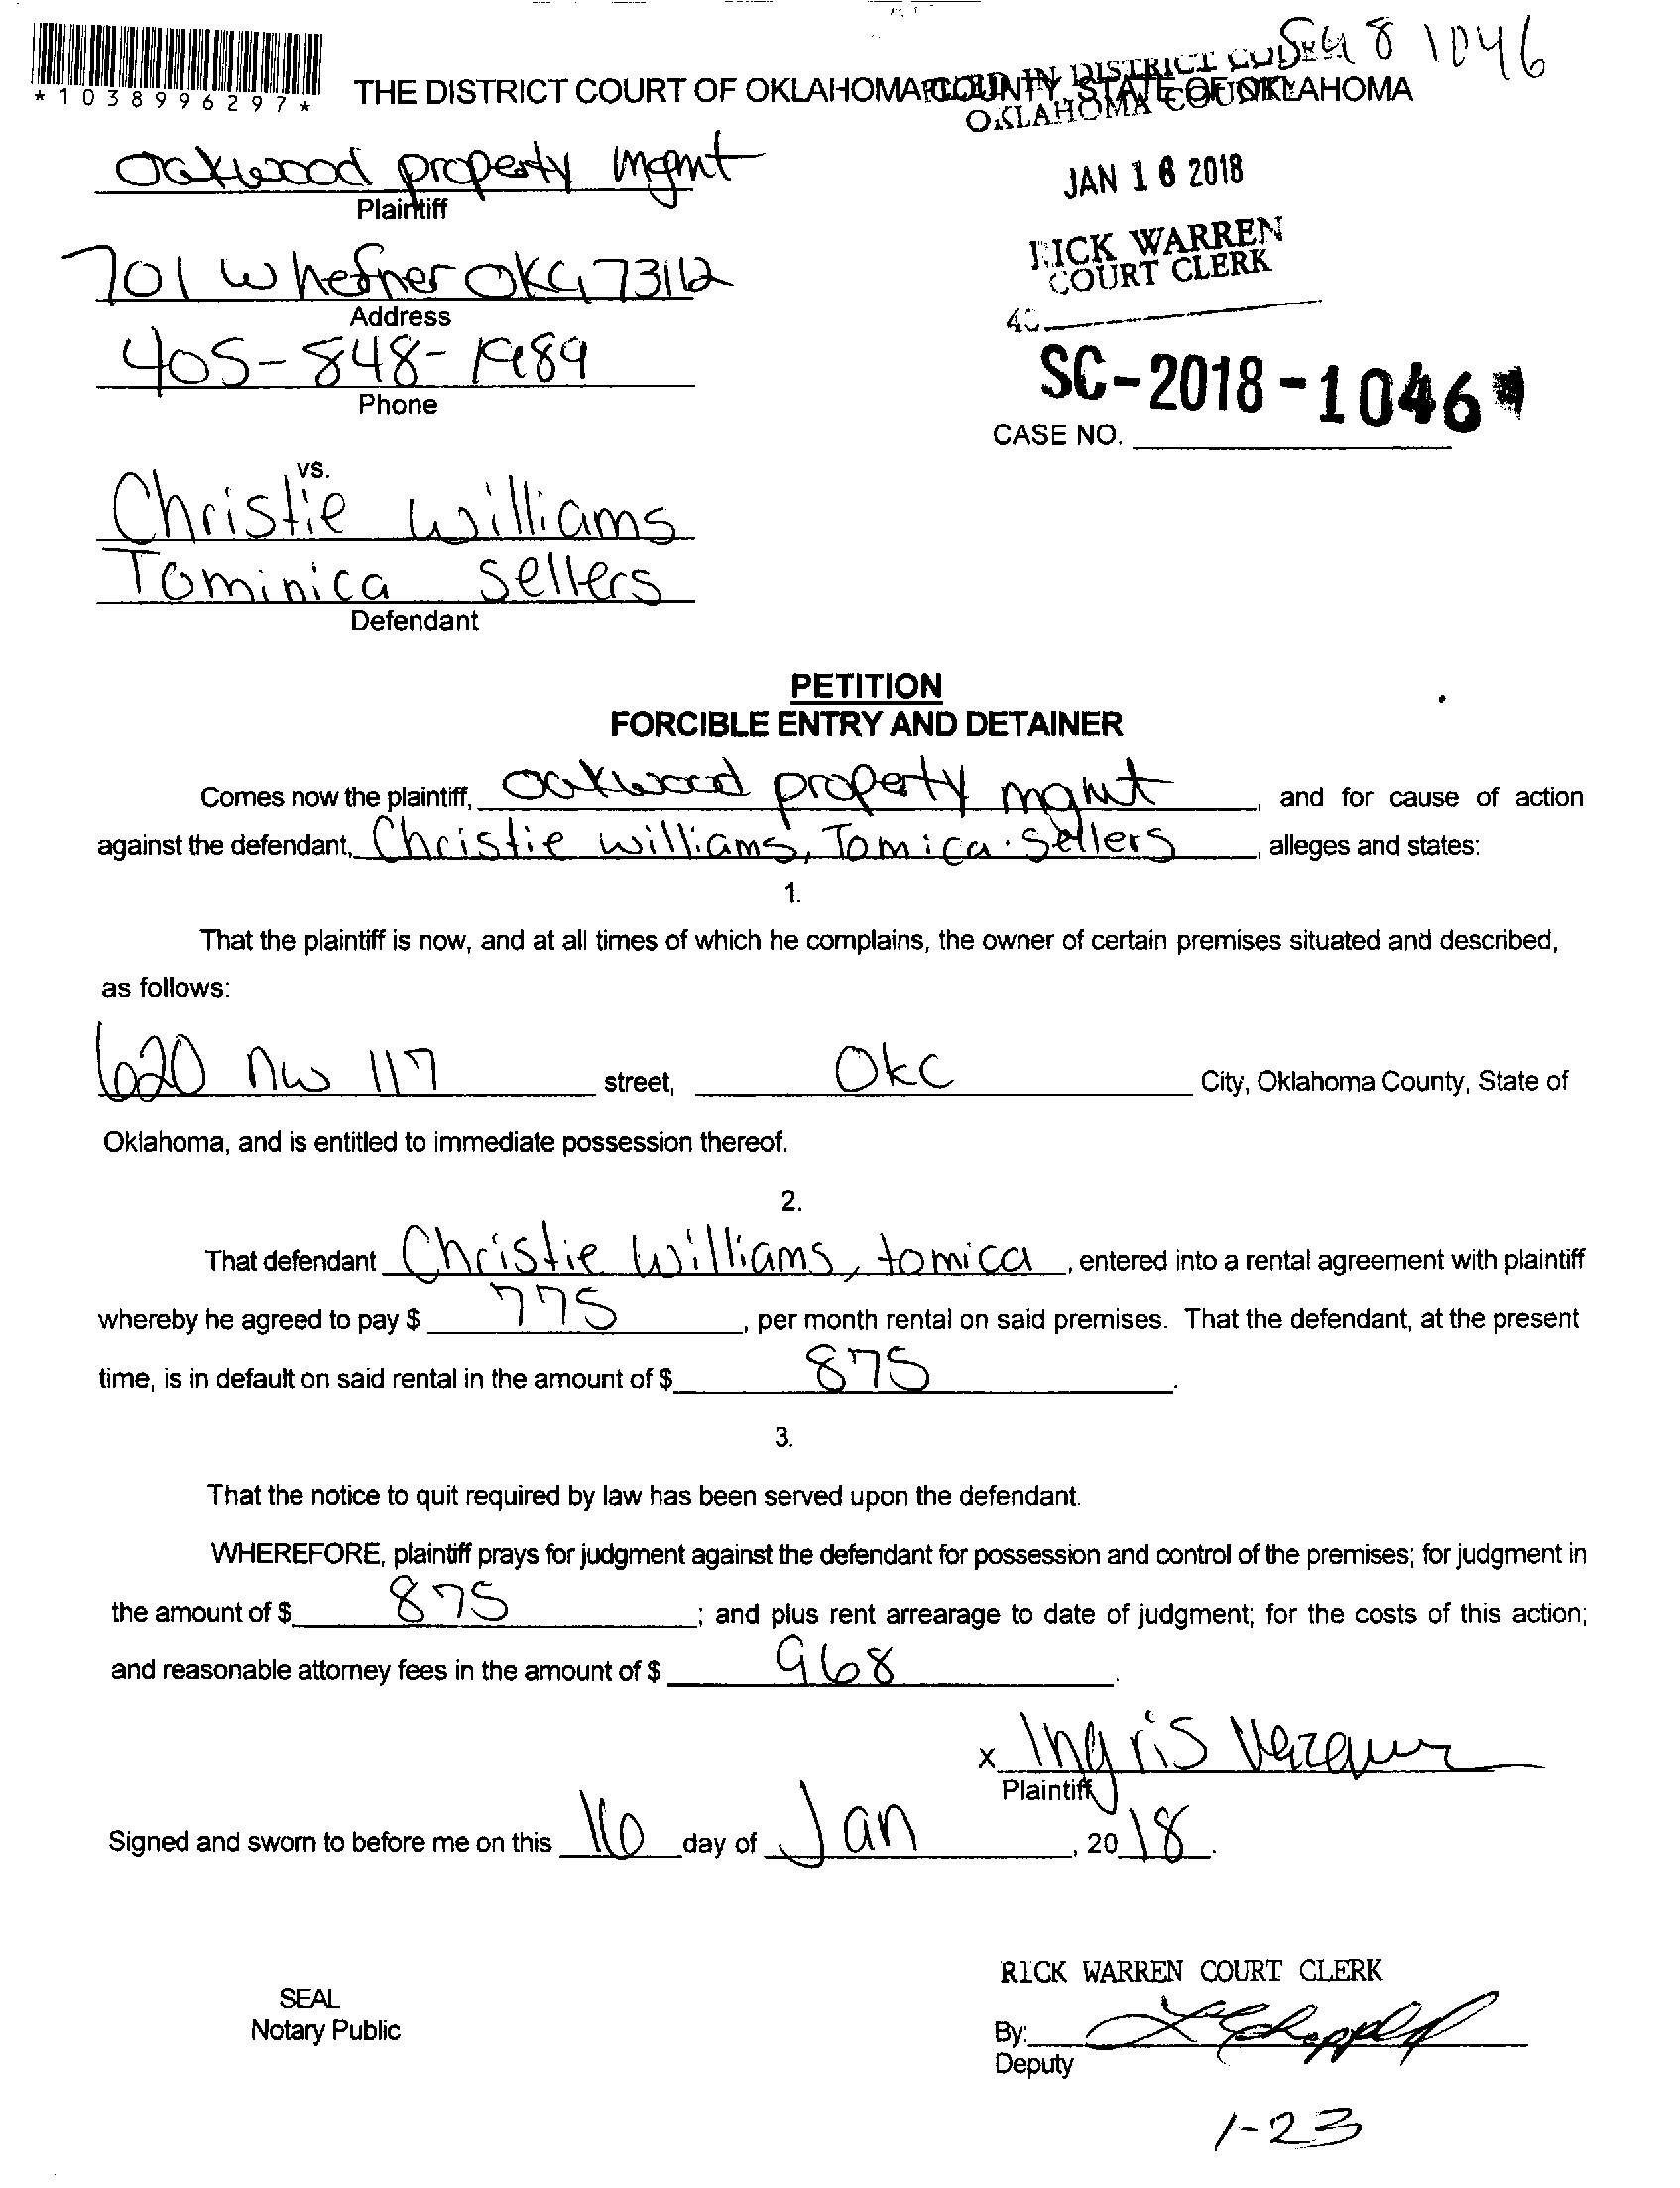 *1038996297*
1046
THE DISTRICT COURT OF OKLAHOMA COUNTY, STATE OF OKLAHOMA
FILED IN DISTRICT COURT
OKLAHOMA COUNTY
Oakwood property mgmt
Plaintiff
JAN 16 2018
RICK WARREN
COURT CLERK
701 W hefner OKC, 73112
Address
405-848-1989
Phone
SC-2018-1046
CASE NO.
vs.
Christie Williams
Tominica Sellers
Defendant
PETITION
FORCIBLE ENTRY AND DETAINER
Comes now the plaintiff, Oakwood property mgmt, and for cause of action
against the defendant, Christie Williams, Tomica Sellers, alleges and states:
1.
That the plaintiff is now, and at all times of which he complains, the owner of certain premises situated and described,
as follows:
620 NW 117 street, OKC City, Oklahoma County, State of
Oklahoma, and is entitled to immediate possession thereof.
2.
That defendant Christie Williams, tomica, entered into a rental agreement with plaintiff
whereby he agreed to pay $ 775, per month rental on said premises. That the defendant, at the present
time, is in default on said rental in the amount of $ 875.
3.
That the notice to quit required by law has been served upon the defendant.
WHEREFORE, plaintiff prays for judgment against the defendant for possession and control of the premises; for judgment in
the amount of $ 875; and plus rent arrearage to date of judgment; for the costs of this action;
and reasonable attorney fees in the amount of $ 968.
x Ingris
Plaintiff
Signed and sworn to before me on this 16 day of Jan, 2018.
RICK WARREN COURT CLERK
SEAL
Notary Public
By:
Deputy
1-23